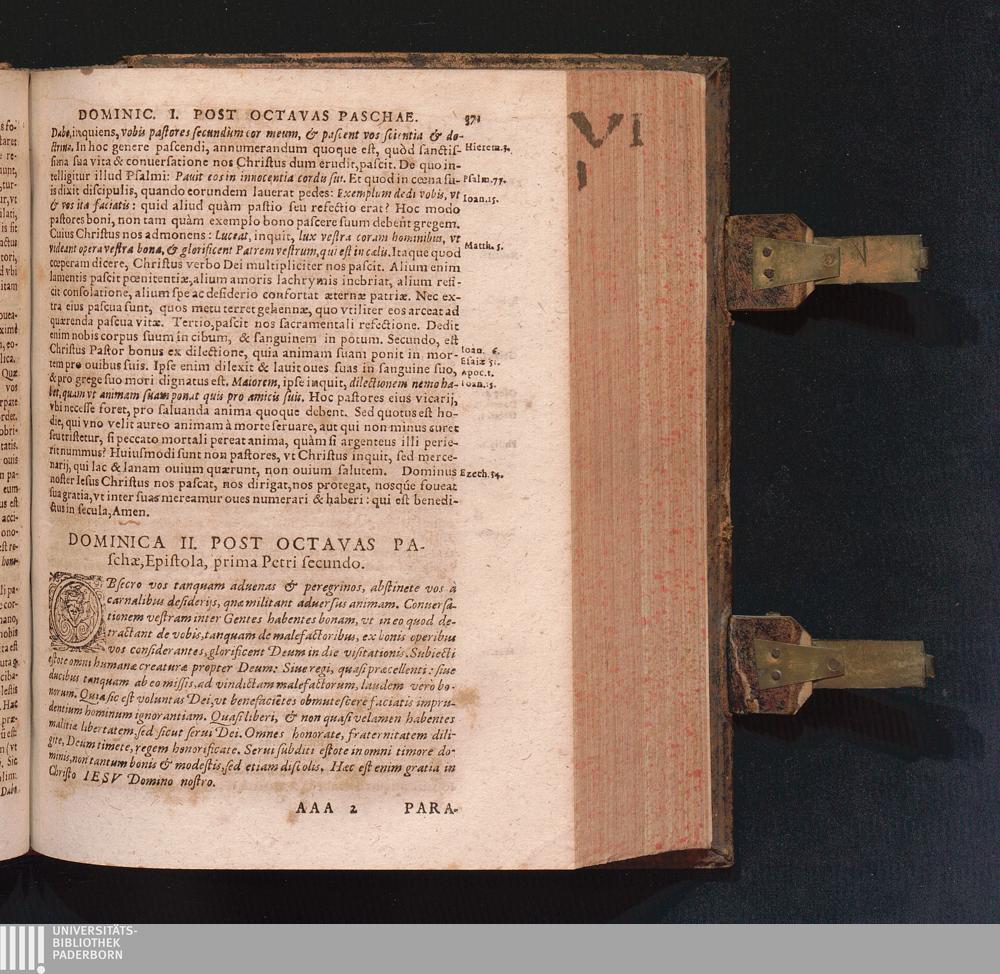 DOMINIC. I. POST OCTAVAS PASCHAE. 371
Dabo, inquiens, vobis pastores secundùm cor meum, & pascent vos scientia & do-
ctrina. In hoc genere pascendi, annumerandum quoque est, quòd sanctis-
sima sua vita & conuersatione nos Christus dum erudit, pascit. De quo in-
telligitur illud Psalmi: Pauit eos in innocentia cordis sui. Et quod in cœna su-
is dixit discipulis, quando eorundem lauerat pedes: Exemplum dedi vobis, vt
& vos ita faciatis: quid aliud quàm pastio seu refectio erat? Hoc modo
pastores boni, non tam quàm exemplo bono pascere suum debent gregem.
Cuius Christus nos admonens: Luceat, inquit, lux vestra coram hominibus, vt
videant opera vestra bona, & glorificent Patrem vestrum, qui est in cælis. Itaque quod
cœperam dicere, Christus verbo Dei multipliciter nos pascit. Alium enim
lamentis pascit pœnitentiæ, alium amoris lachrymis inebriat, alium refi-
cit consolatione, alium spe ac desiderio confortat æternæ patriæ. Nec ex-
tra eius pascua sunt, quos metu terret gehennæ, quo vtiliter eos arceat ad
quærenda pascua vitæ. Tertio, pascit nos sacramentali refectione. Dedit
enim nobis corpus suum in cibum, & sanguinem in potum. Secundo, est
Christus Pastor bonus ex dilectione, quia animam suam ponit in mor-
tem pro ouibus suis. Ipse enim dilexit & lauit oues suas in sanguine suo,
& pro grege suo mori dignatus est. Maiorem, ipse inquit, dilectionem nemo ha-
bet, quam vt animam suam ponat quis pro amicis suis. Hoc pastores eius vicarij,
vbi necesse foret, pro saluanda anima quoque debent. Sed quotus est ho-
die, qui vno velit aureo animam à morte seruare, aut qui non minus curet
seu tristetur, si peccato mortali pereat anima, quàm si argenteus illi perie-
rit nummus? Huiusmodi sunt non pastores, vt Christus inquit, sed merce-
narij, qui lac & lanam ouium quærunt, non ouium salutem. Dominus
noster Iesus Christus nos pascat, nos dirigat, nos protegat, nosq́ue foueat
sua gratia, vt inter suas mereamur oues numerari & haberi: qui est benedi-
ctus in secula, Amen.
Hierem.3.
Psalm.77.
Ioan.15.
Matth.5.
Ioan. 6.
Esaiæ 51.
Apoc.1.
Ioan.15.
Ezech.34.
DOMINICA II. POST OCTAVAS PA-
schæ, Epistola, prima Petri secundo.
OBsecro vos tanquam aduenas & peregrinos, abstinete vos à
carnalibus desiderijs, quæ militant aduersus animam. Conuersa-
tionem vestram inter Gentes habentes bonam, vt in eo quod de-
tractant de vobis, tanquam de malefactoribus, ex bonis operibus
vos considerantes, glorificent Deum in die visitationis. Subiecti
estote omni humanæ creaturæ propter Deum: Siue regi, quasi præcellenti: siue
ducibus tanquam ab eo missis, ad vindictam malefactorum, laudem verò bo-
norum. Quia sic est voluntas Dei, vt benefacietes obmutescere faciatis impru-
dentium hominum ignorantiam. Quasi liberi, & non quasi velamen habentes
malitiæ libertatem, sed sicut serui Dei. Omnes honorate, fraternitatem dili-
gite, Deum timete, regem honorificate. Serui subditi estote in omni timore do-
minis, non tantum bonis & modestis, sed etiam discolis. Hæc est enim gratia in
Christo IESV Domino nostro.
AAA 2 PARA-
VI
UNIVERSITÄTS-
BIBLIOTHEK
PADERBORN